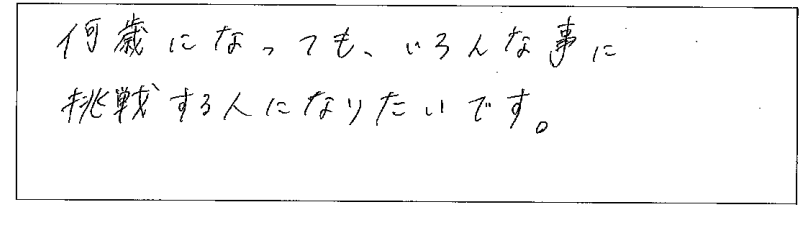 何歳になっても、いろんな事に
挑戦する人になりたいです。